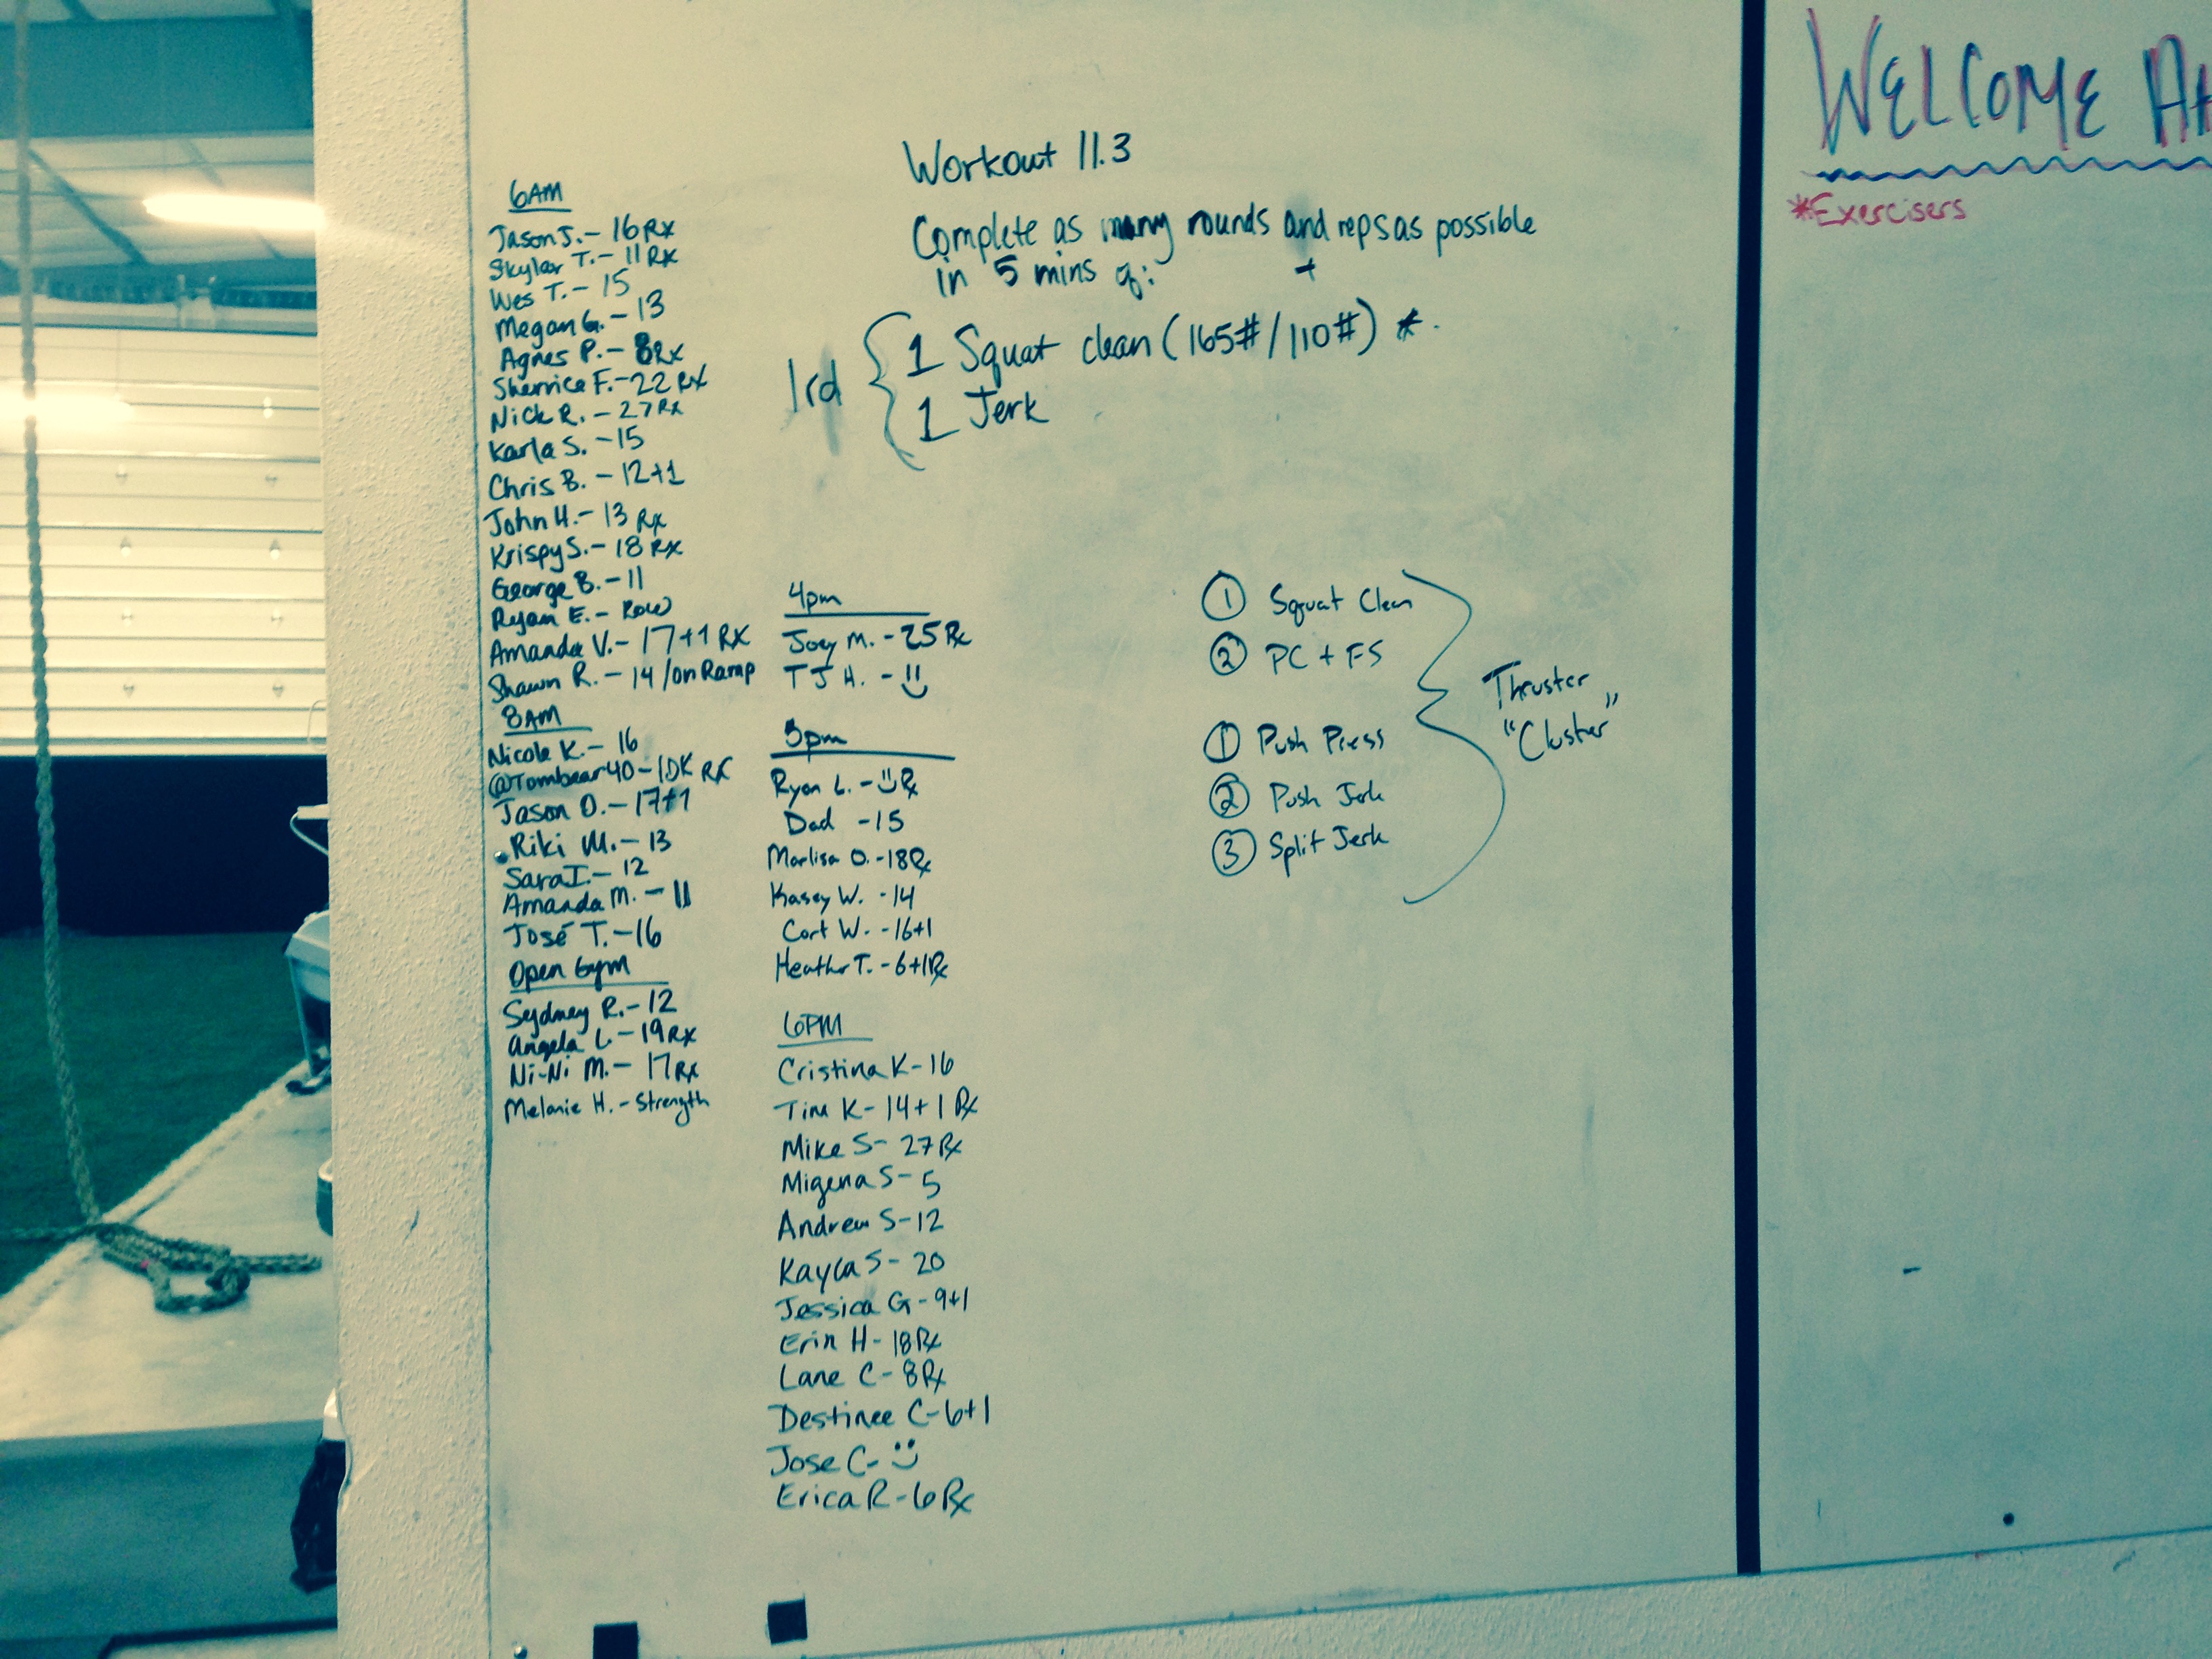 Workout 11.3
Complete as many rounds and reps as possible
in 5 mins of: +
1rd { 1 Squat clean (165#/110#) *
1 Jerk
6AM
Jason J. - 16 Rx
Skylar T. - 11 Rx
Wes T. - 15
Megan G. - 13
Agnes P. - 8 Rx
Sherrice F. - 22 Rx
Nick R. - 27 Rx
Karla S. - 15
Chris B. - 12+1
John H. - 13 Rx
Krispy S. - 18 Rx
George B. - 11
Ryan E. - Row
Amanda V. - 17+1 Rx
Shawn R. - 14/on Ramp
8AM
Nicole K. - 16
@Tombear40 - IDK Rx
Jason O. - 17+1
Riki M. - 13
Sara I. - 12
Amanda M. - 11
José T. - 16
Open Gym
Sydney R. - 12
Angela L. - 19 Rx
Ni-Ni M. - 17 Rx
Melanie H. - Strength
4pm
Joey M. - 25 Rx
TJ H. - ☺
5pm
Ryan L. - ☺ Rx
Dad - 15
Marlisa O. - 18 Rx
Kasey W. - 14
Cort W. - 16+1
Heather T. - 6+1 Rx
6PM
Cristina K - 16
Tim K - 14+1 Rx
Mike S - 27 Rx
Migena S - 5
Andrew S - 12
Kayla S - 20
Jessica G - 9+1
Erin H - 18 Rx
Lane C - 8 Rx
Destinee C - 6+1
Jose C - ☺
Erica R - 6 Rx
① Squat Clean
② PC + FS
① Push Press
② Push Jerk
③ Split Jerk
Thruster
"Cluster"
WELCOME
*Exercisers